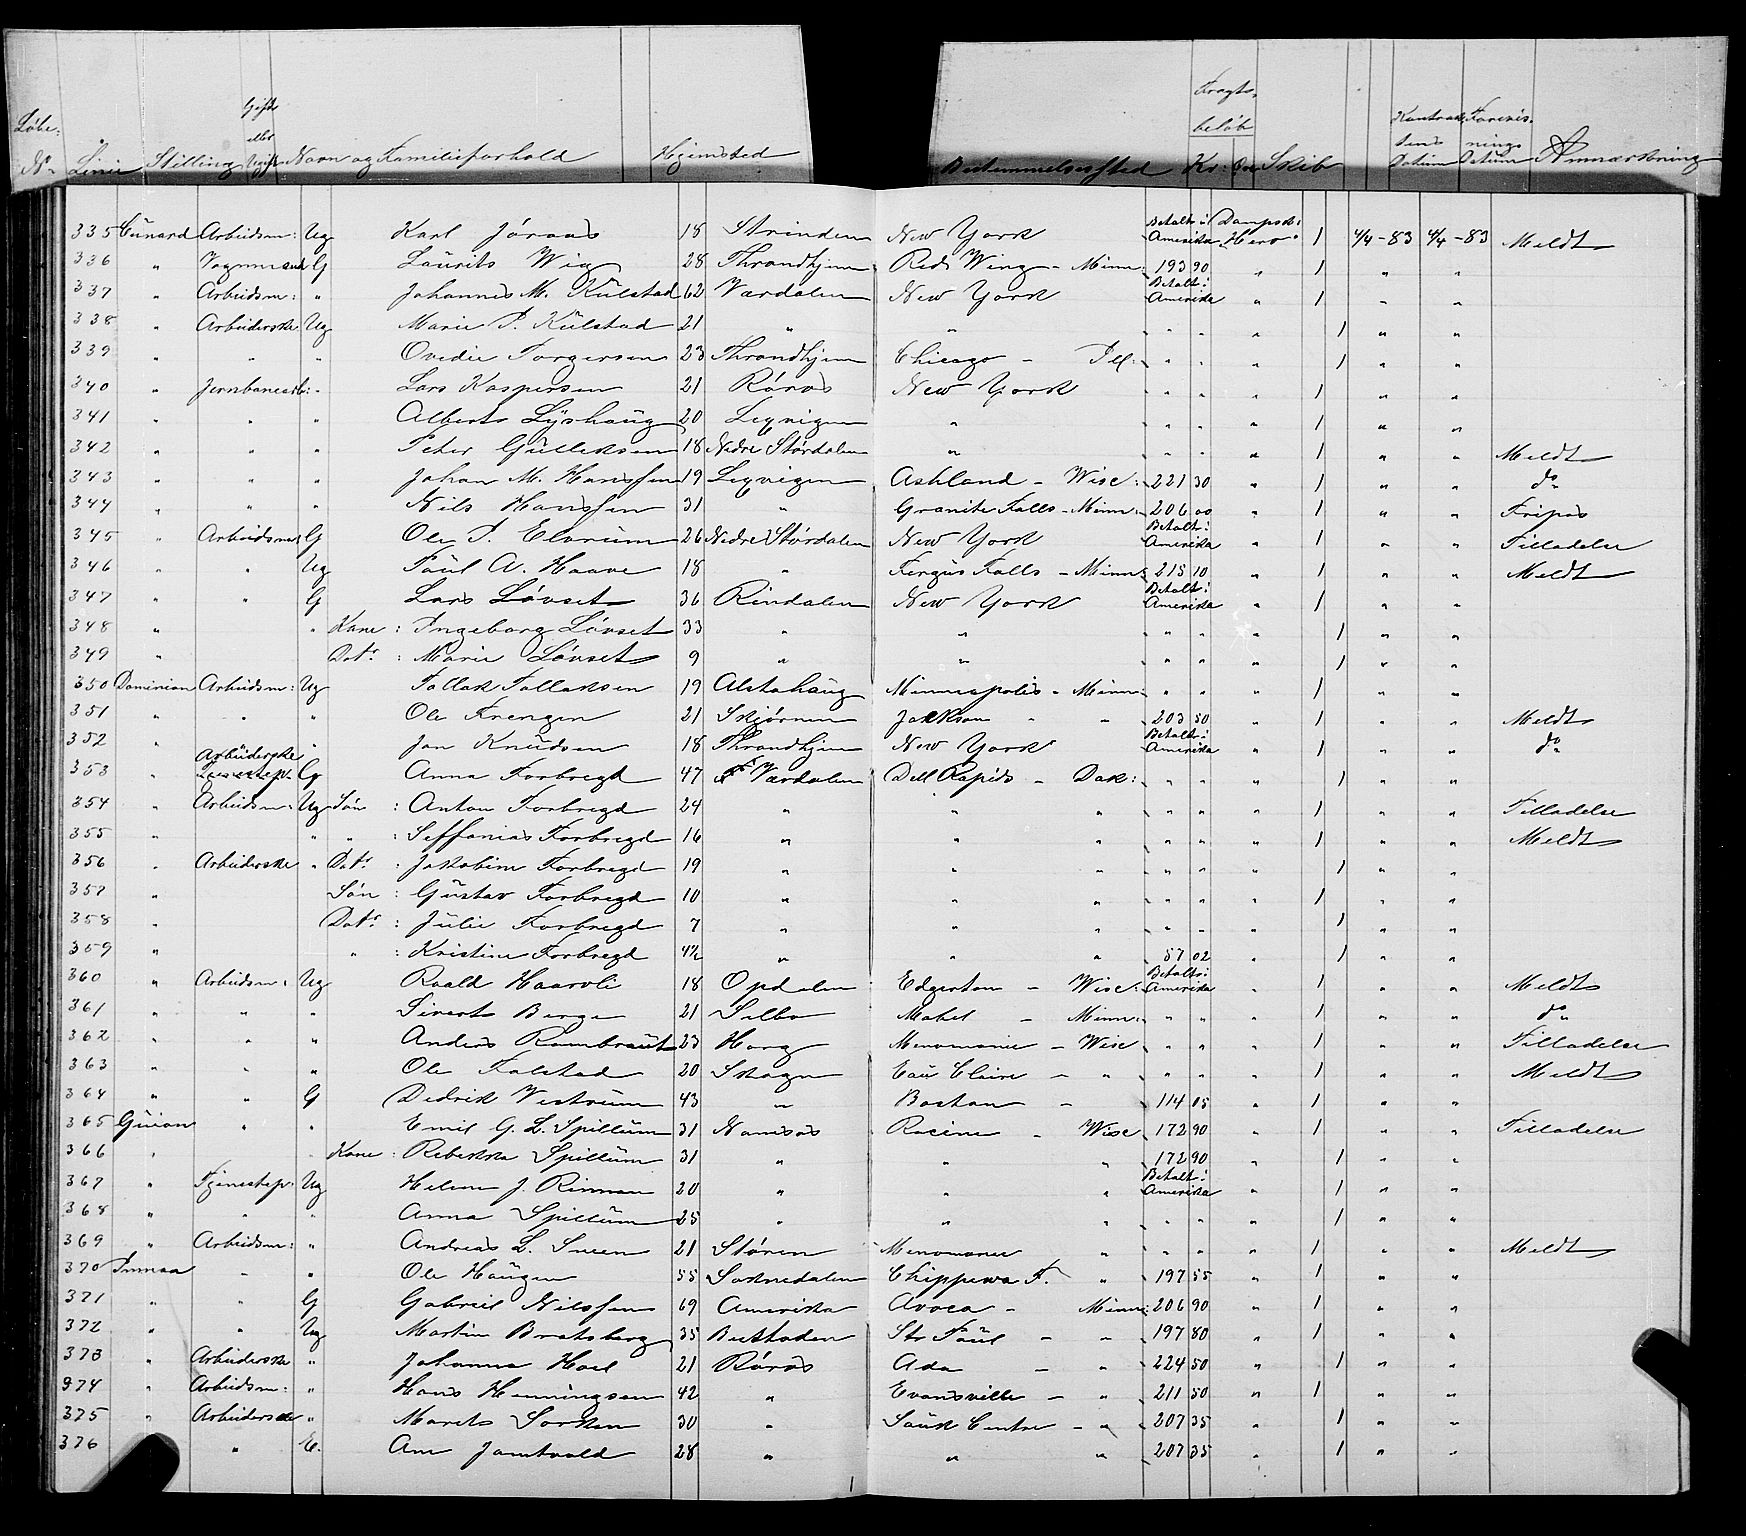 Løbe- N. Linie Stilling Gift eller Ugift Navn og Familieforhold Hjemsted Bestemmelsessted Fragtbeløb Kr: Øre Skib Kontraktens Datum Forevisnings Datum Anmærkning
335 Cunard Arbeidsm: Ug Karl Jöraas 18 Strinden New York Betalt i Amerika Dampsk: Hero 1 4/4-83 4/4-83 Meldt
336 " Vognmand G Laurits Wig 28 Throndhjem Red Wing - Minn: 193 90 " 1 " "
337 " Arbeidsm: " Johannes M. Külstad 62 Værdalen New York Betalt i Amerika " 1 " "
338 " Arbeiderske Ug Marie P. Külstad 21 " " " " " 1 " "
339 " " " Ovedie Torgersen 23 Throndhjem Chicago - Ill: " " " 1 " "
340 " Jernbanearb: " Lars Kaspersen 21 Röraas New York " " " 1 " "
341 " " " Albert Lyshaug 20 Lexvigen " " " " 1 " "
342 " " " Peter Gulleksen 18 Nedre Stördalen " " " " 1 " " Meldt
343 " " " Johan M. Hanssen 19 Lexvigen Ashland - Wisc: 221 30 " 1 " " do
344 " " " Nils Hanssen 31 " Granite Falls - Minn: 206 00 " 1 " " Fripas
345 " Arbeidsmd G Ole P. Elvrum 26 Nedre Stördalen New York Betalt i Amerika " 1 " " Tilladelse
346 " " Ug Paul A. Haave 18 " Fergus Falls - Minn: 215 10 " 1 " " Meldt
347 " " G Lars Lövset 36 Rindalen New York Betalt i Amerika " 1 " "
348 " " Kone: Ingeborg Lövset 33 " " " " " 1 " "
349 " Datr: Marie Lövset 9 " " " " " 1 " "
350 Dominion Arbeidsm: Ug Tollak Tollaksen 19 Alstahaug Minneapolis - Minn " " " 1 " "
351 " " " Ole Frengen 21 Skjörnen Jackson " " 203 50 " 1 " " Meldt
352 " " Jon Knudsen 18 Throndhjem New York Betalt i Amerika " 1 " " do
353 " Arbeiderske G Anna Forbregd 47 Værdalen Dell Rapids - Dak: " " " 1 " "
354 " Arbeidsm: Ug Sön: Anton Forbregd 24 " " " " " " 1 " " Tilladelse
355 " " " : Seffanias Forbregd 16 " " " " " " 1 " " Meldt
356 " Arbeiderske " Datr: Jakobine Forbregd 19 " " " " " " 1 " "
357 " Sön: Gustav Forbregd 10 " " " " " " 1 " "
358 " Datr: Julie Forbregd 7 " " " " " " 1 " "
359 " " : Kristine Forbregd 4½ " " " 57 02 " 1 " "
360 " Arbeidsm: Ug Roald Haarvli 18 Opdalen Edgerton - Wisc: Betalt i Amerika " 1 " " Meldt
361 " " " Sivert Berge 21 Selbo Mabel - Minn: " " " 1 " " do
362 " " " Anders Rambraut 23 Horg Menomonie - Wisc " " " 1 " " Tilladelse
363 " " " Ole Falstad 20 Skogn Eau Claire - " " " " 1 " " Meldt
364 " " G Dedrik Vestrum 43 " Boston - 114 05 " 1 " "
365 Guion " " Emil G. L. Spillum 31 Namsos Racine - Wisc 172 90 " 1 " " Tilladelse
366 " " Kone: Rebekka Spillum 31 " " " 172 90 " 1 " "
367 " Tjenestep: Ug Helene J. Rinnan 20 " " " Betalt i Amerika " 1 " "
368 " " " Anna Spillum 25 " " " " " " 1 " "
369 " Arbeidsm: " Andreas L. Sneen 21 Stören Menomonie " " " " 1 " " Meldt
370 Inman " " Ole Haugen 55 Soknedalen Chippewa F. " 197 55 " 1 " "
371 " " G Gabriel Nilssen 69 Amerika Avoca - Minn: 206 90 " 1 " "
372 " " Ug Martin Bratsberg 35 St. Paul - " 197 80 " 1 " "
373 " Arbeiderske " Johanna Hoel 21 Röraas Ada - " 224 50 " 1 " "
374 " Arbeidsm: " Hans Henningsen 42 " Evansville - " 211 50 " 1 " "
375 " Arbeiderske " Marit Sorken 30 " Sauk Centre - " 207 35 " 1 " "
376 " E. Ane Jamtvold 28 " " " 207 35 " 1 " "